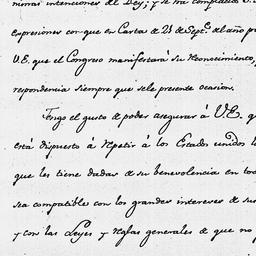 intenciones del Rey; y se ha complacido
expresiones con que en Carta de 21 de Septe. del año
V.E. que el Congreso manifestará su Reconocimiento,
respondencia siempre que se le presente ocasion.
Tengo el gusto de poder asegurar á V.E. q
está dispuesto á Repetir á los Estados unidos l
que les tiene dadas de su benevolencia en to
sea compatible con los grandes intereses de su
y con las Leyes y Reglas generales de que no p